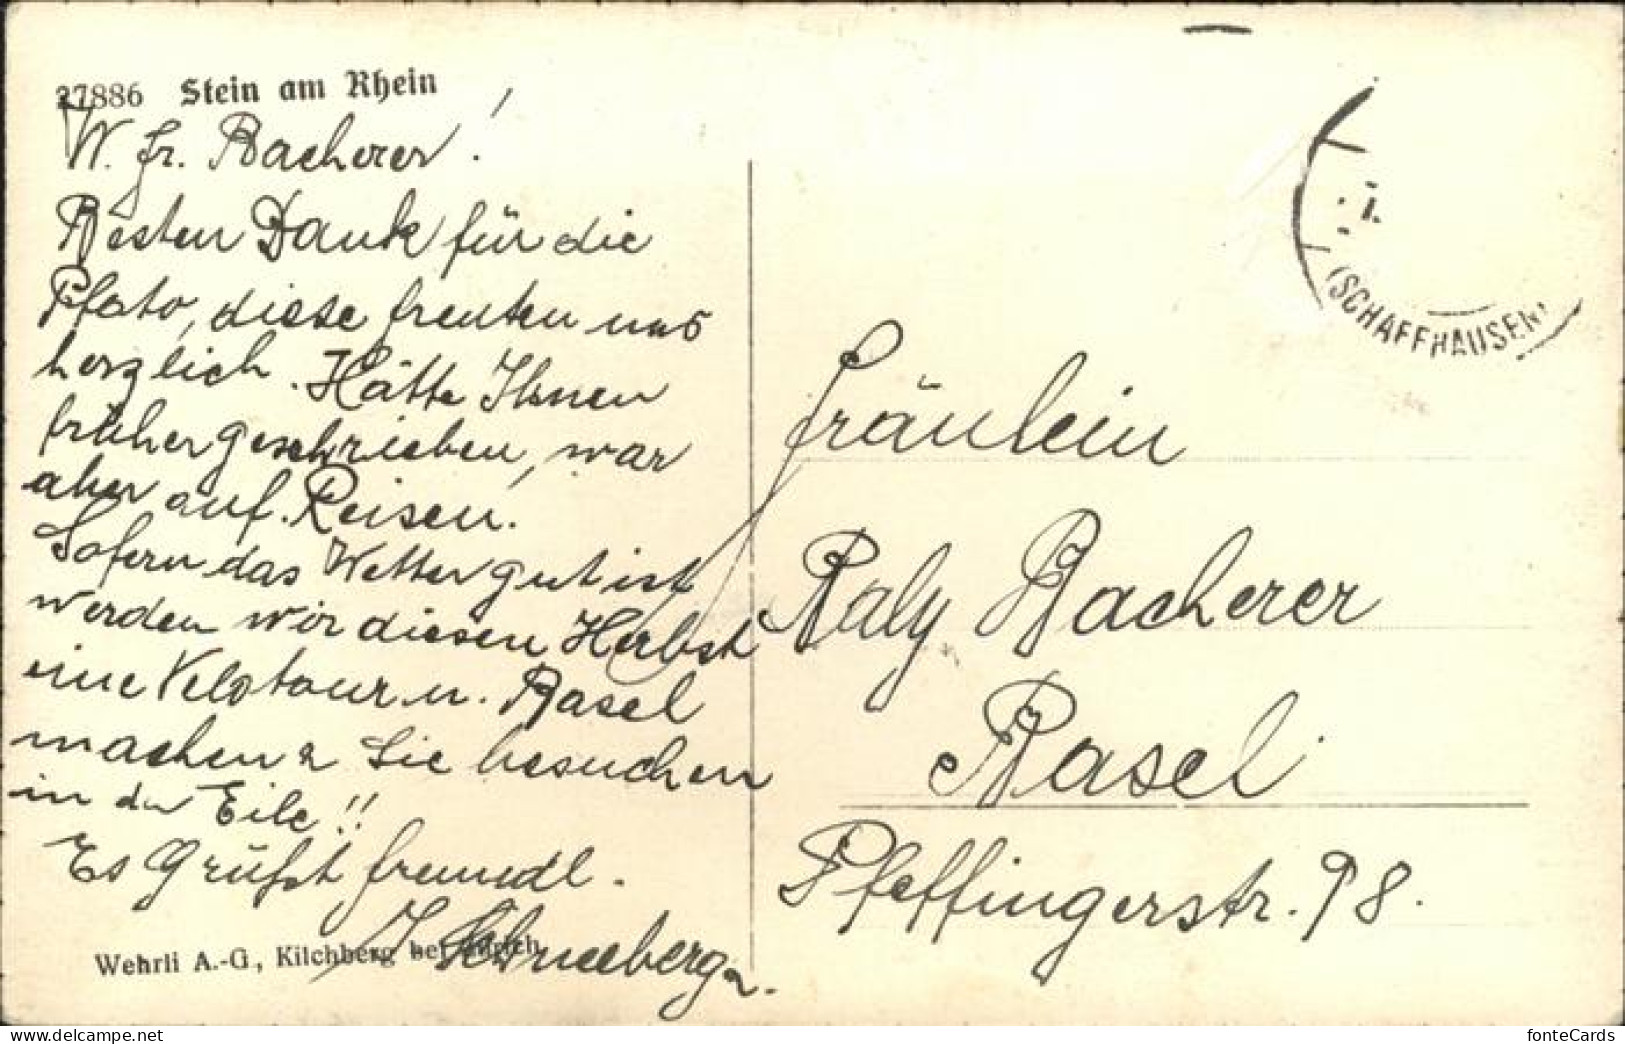 27886 Stein am Rhein
W. Fr. Bacherer!
Besten Dank für die
Photo, diese freuten uns
herzlich. Hätte Ihnen
früher geschrieben, war
aber auf Reisen.
Sofern das Wetter gut ist
werden wir diesen Herbst
eine Velotour n. Basel
machen & Sie besuchen
in der Eile!!
Es Grüsst freundl.
Schneeberger.
Wehrli A.-G., Kilchberg bei Zürich
(SCHAFFHAUSEN)
Fräulein
Raly Bacherer
Basel
Pfeffingerstr. 98.
fonteCards
www.delcampe.net